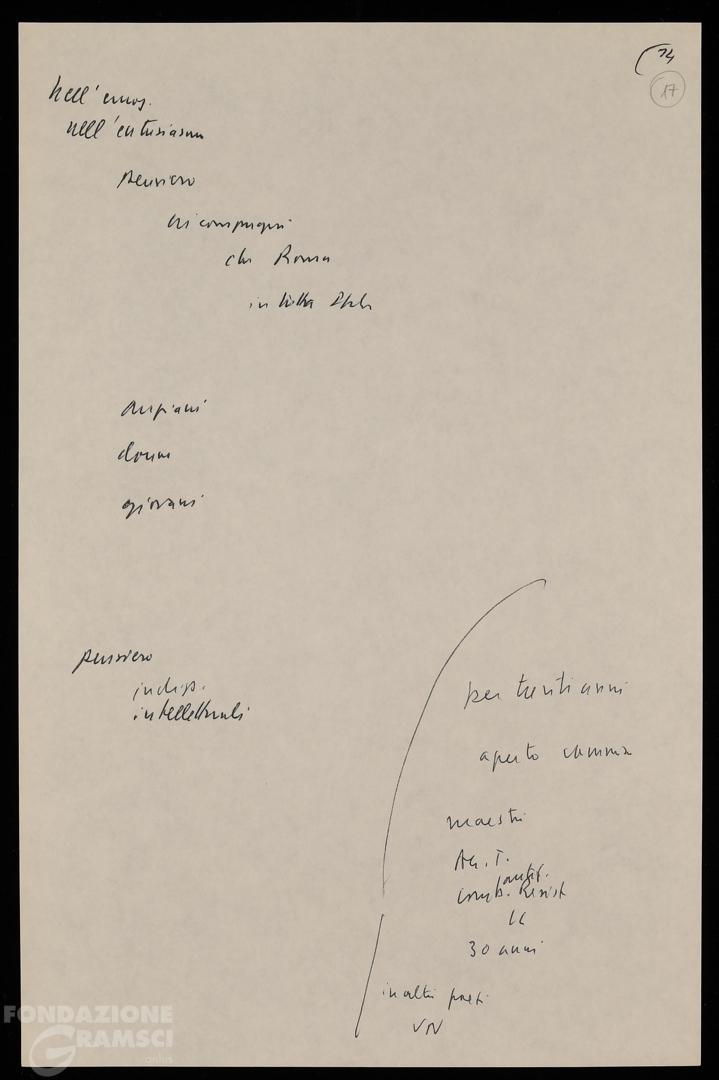 14
17
nell'emoz.
nell'entusiasmo
pensiero
ai compagni
di Roma
in tutta Italia
anziani
donne
giovani
pensiero
indip.
intellettuali
per trenti anni
aperto cammino
maestri
antif.
comb. Resist
30 anni
in altri paesi
VN
FONDAZIONE
GRAMSCI
onlus